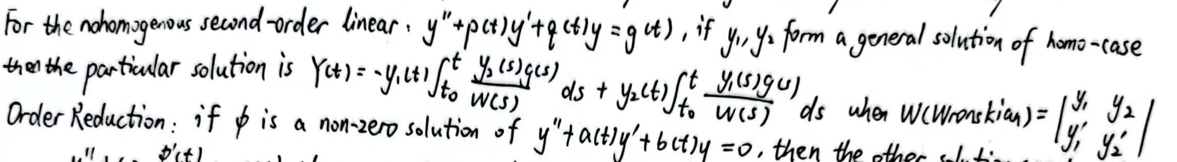 For the nohomogenous second-order linear: y''+p(t)y'+q(t)y=g(t), if y₁, y₂ form a general solution of homo-case
then the particular solution is Y(t) = -y₁(t)∫_{t₀}^{t} y₂(s)g(s)/W(s) ds + y₂(t)∫_{t₀}^{t} y₁(s)g(s)/W(s) ds when W(Wronskian) = |y₁ y₂; y₁' y₂'|
Order Reduction: if ϕ is a non-zero solution of y''+a(t)y'+b(t)y=0, then the other
ϕ'(t)